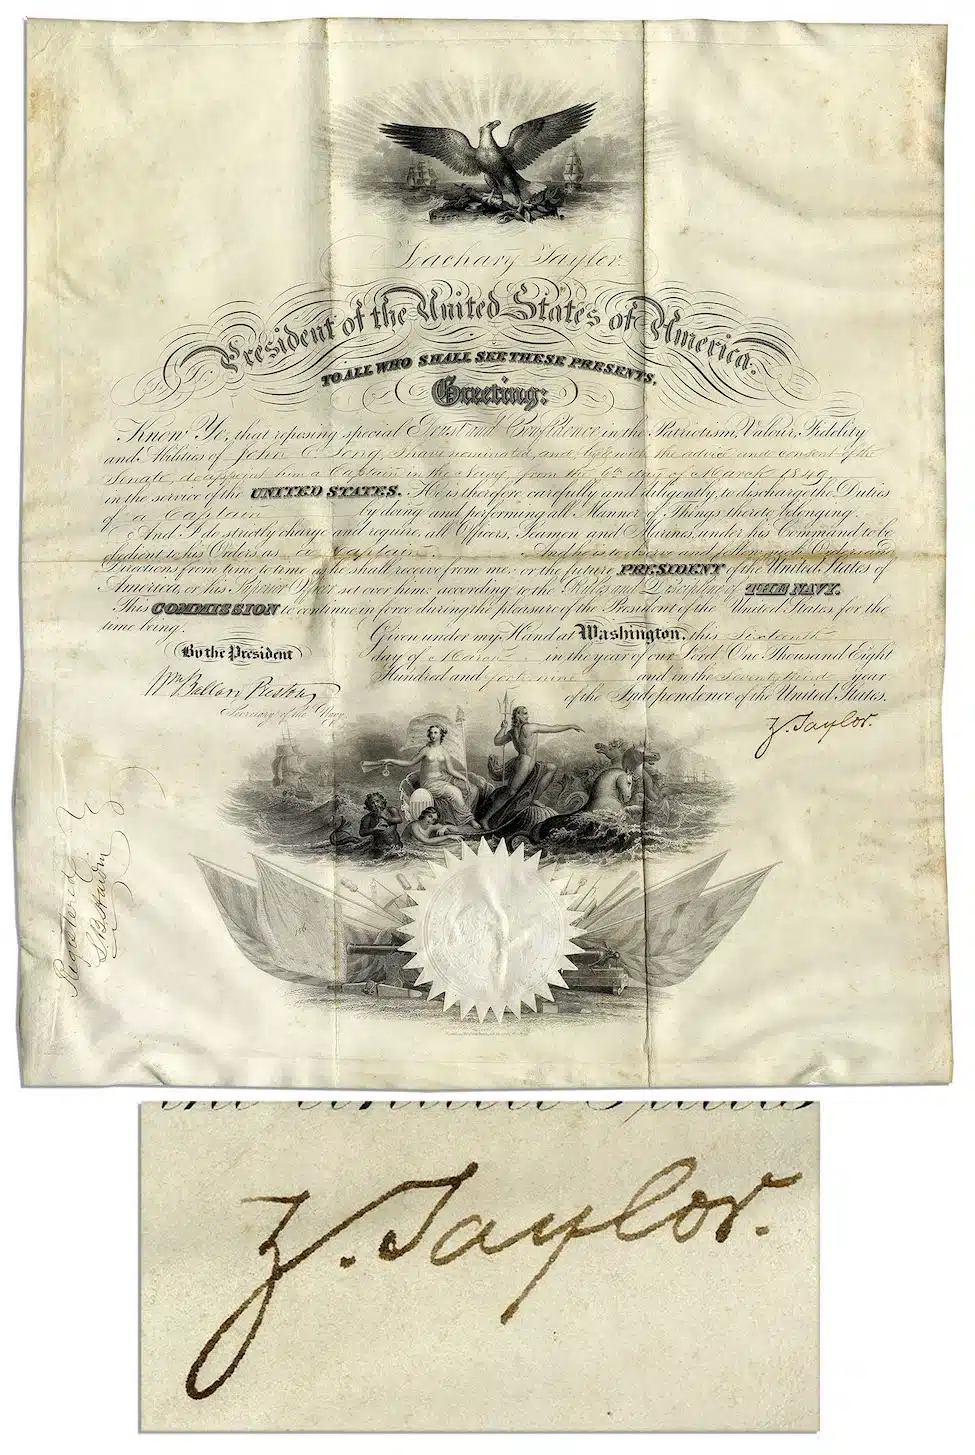 Zachary Taylor
President of the United States of America.
TO ALL WHO SHALL SEE THESE PRESENTS,
Greeting:
Know Ye, that reposing special Trust and Confidence in the Patriotism, Valour, Fidelity
and Abilities of John C Long, I have nominated and, by & with the advice and consent of the
Senate, do appoint him a Captain in the Navy, from the 6th day of March 1849,
in the service of the UNITED STATES. He is therefore carefully and diligently, to discharge the Duties
of a Captain by doing and performing all Manner of Things thereto belonging.
And I do strictly charge and require, all Officers, Seamen and Marines, under his Command to be
obedient to his Orders as a Captain. And he is to observe and follow such Orders and
Directions from time to time as he shall receive from me; or the future PRESIDENT of the United States of
America, or his Superior Officer set over him; according to the Rules and Discipline of THE NAVY.
This COMMISSION to continue in force during the pleasure of the President of the United States for the
time being.
Given under my Hand at Washington, this Sixteenth
By the President
day of March in the year of our Lord One Thousand Eight
Hundred and forty nine and in the Seventy third year
of the Independence of the United States.
Wm Ballard Preston
Secretary of the Navy
Z. Taylor.
Registered
Z. Taylor.